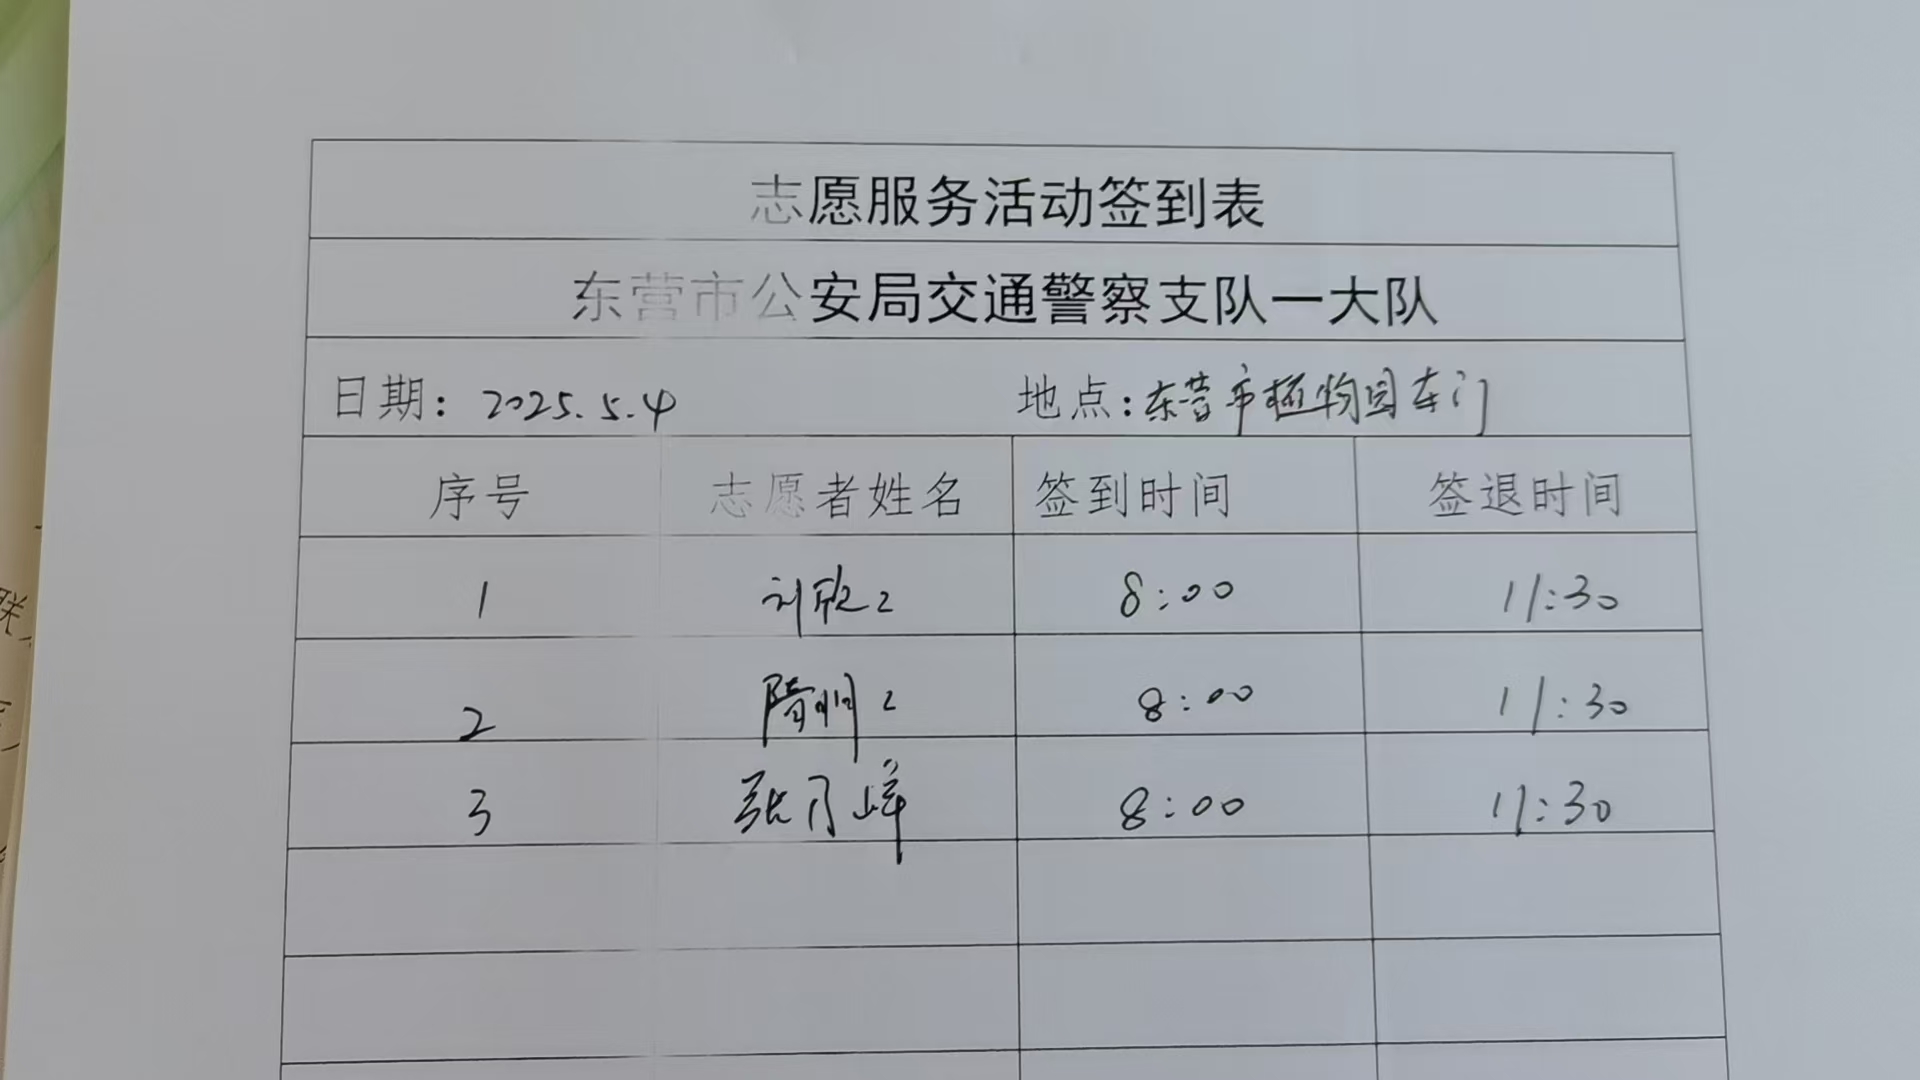 志愿服务活动签到表
东营市公安局交通警察支队一大队
日期: 2025.5.4 地点: 东营市植物园东门
序号 志愿者姓名 签到时间 签退时间
1 刘欣2 8:00 11:30
2 隋明2 8:00 11:30
3 张月峰 8:00 11:30
联